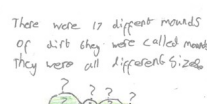 There were 17 diffent mounds
of dirt they were called mounds
they were all different sizes
? ? ? ?
?